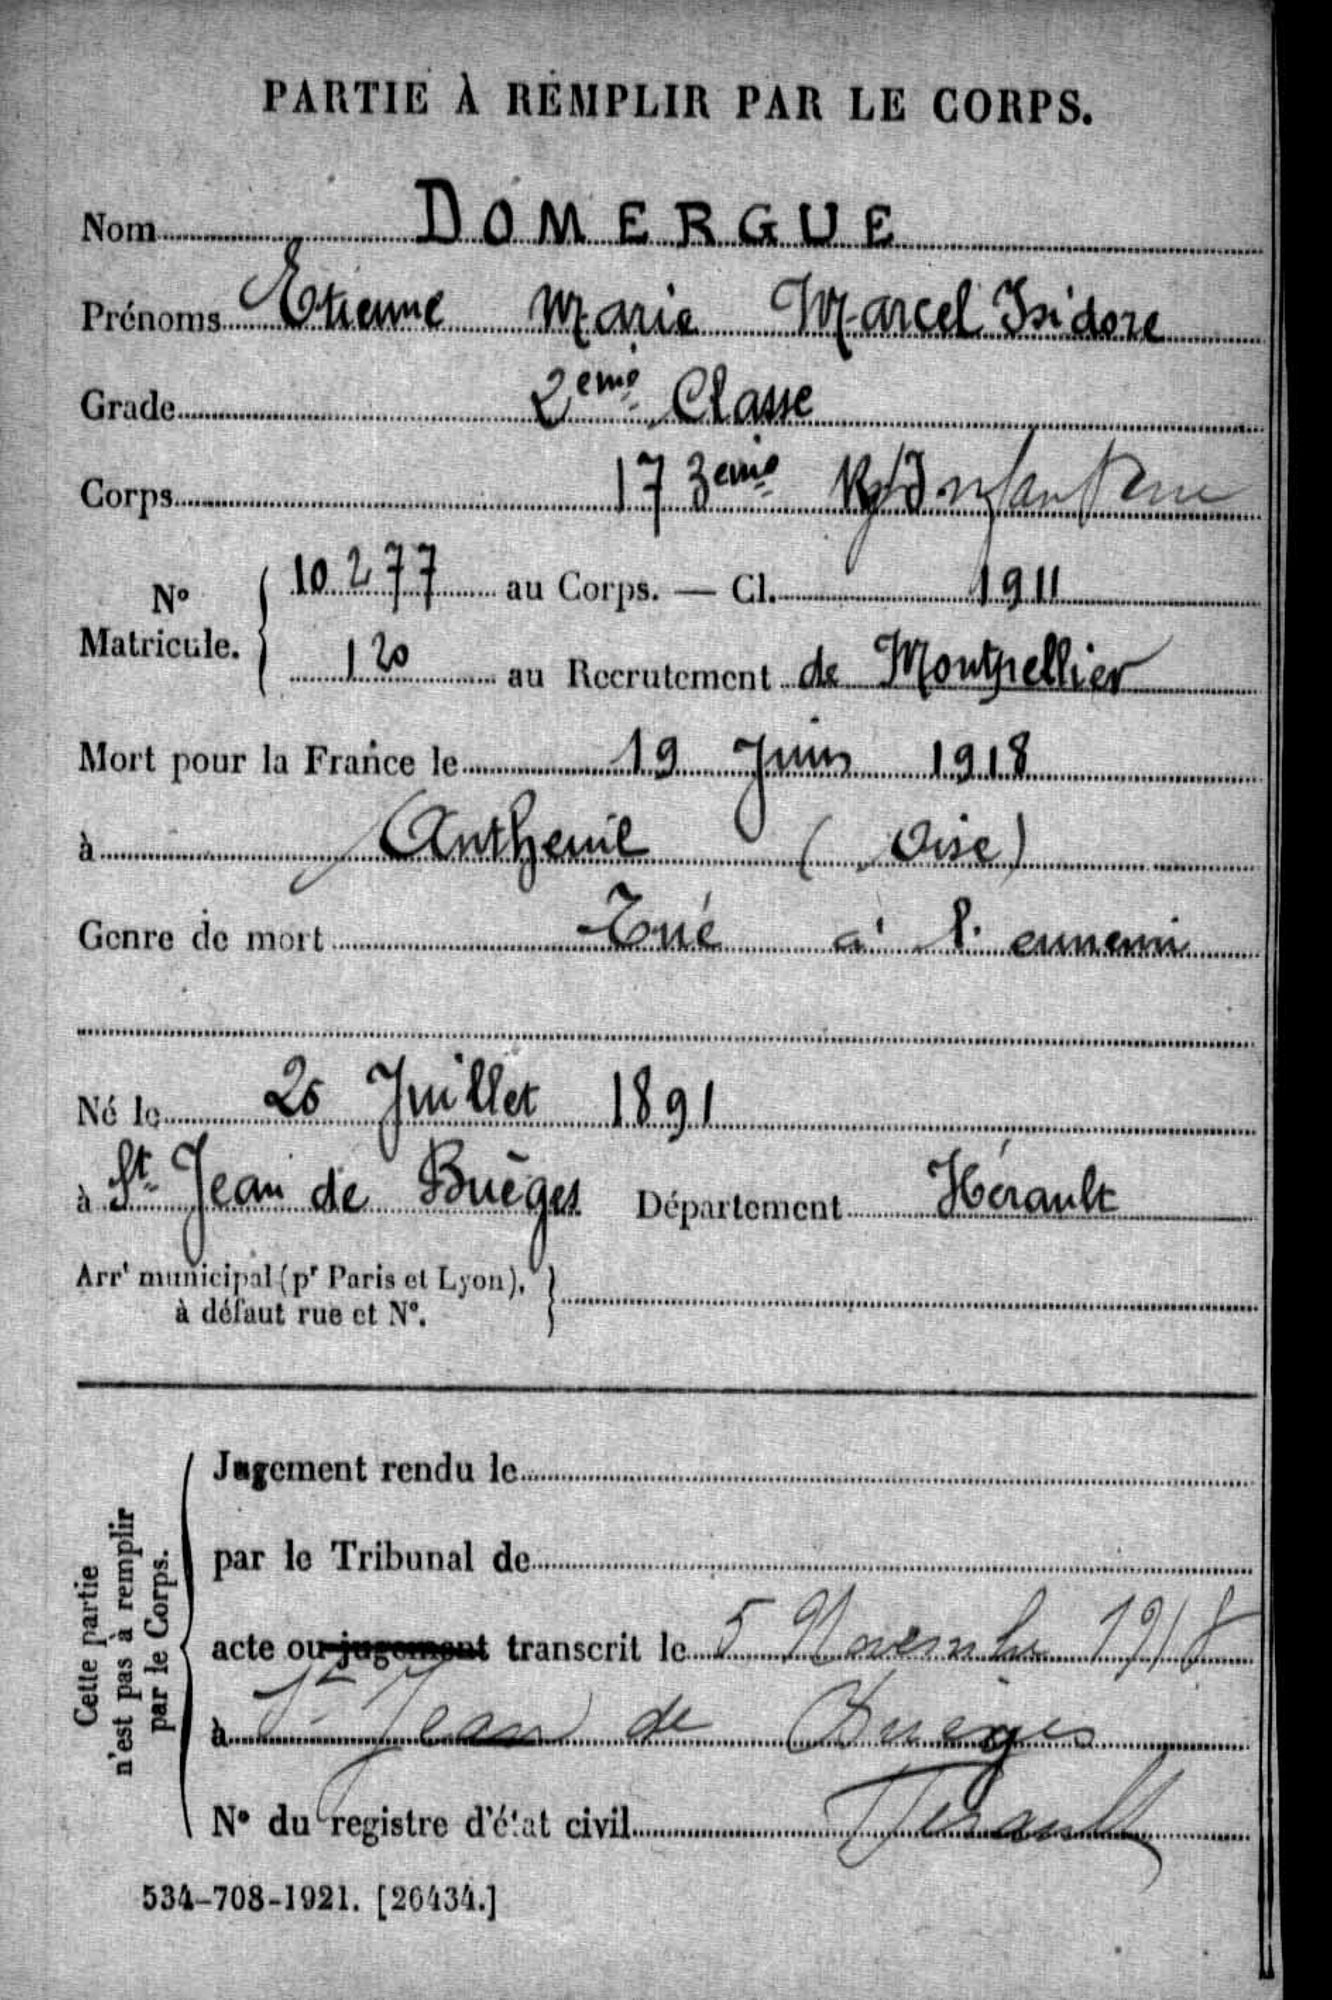 PARTIE À REMPLIR PAR LE CORPS.
Nom DOMERGUE
Prénoms Etienne Marie Marcel Isidore
Grade 2eme Classe
Corps 173eme Rgt d'Infanterie
N° Matricule. { 10277 au Corps. — Cl. 1911
120 au Recrutement de Montpellier
Mort pour la France le 19 Juin 1918
à Antheuil (Oise)
Genre de mort Tué à l'ennemi
Né le Juillet 1891
à St. Jean de Buèges Département Hérault
Arrt municipal (pr Paris et Lyon), }
à défaut rue et N°.
Cette partie
n'est pas à remplir
par le Corps.
Jugement rendu le
par le Tribunal de
acte ou jugement transcrit le 5 Novembre 1918
à St Jean de Buèges
N° du registre d'état civil Hérault
534-708-1921. [26434.]